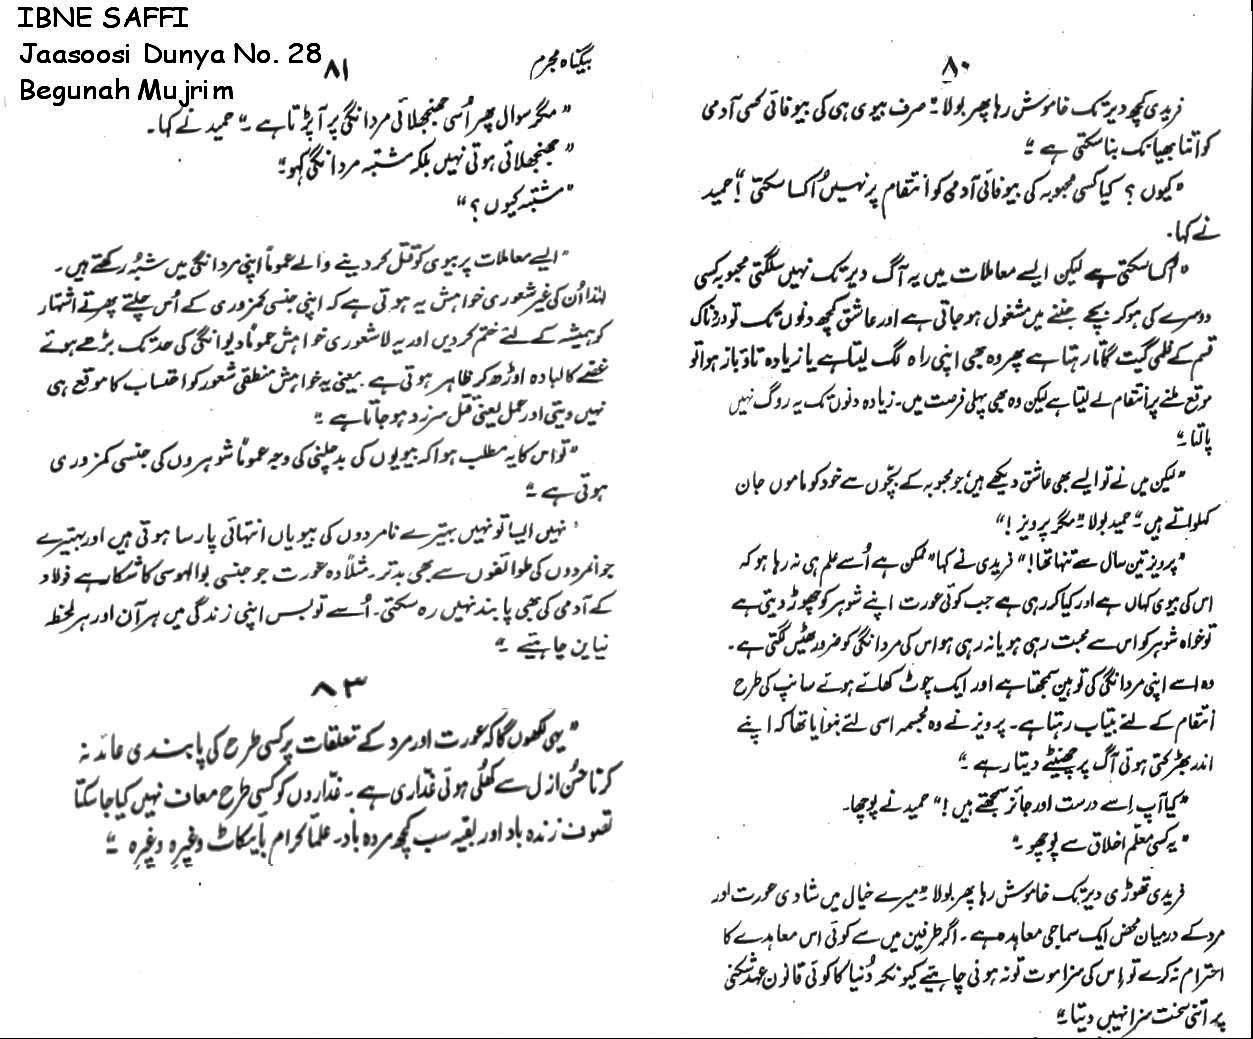 IBNE SAFFI
Jaasoosi Dunya No. 28
Begunah Mujrim
۸۰
فریدی کچھ دیر تک خاموش رہا پھر بولا "صرف بیوی ہی کی بیوفائی کسی آدمی
کو اتنا بھیانک بنا سکتی ہے۔"
"کیوں؟ کیا کسی محبوبہ کی بیوفائی آدمی کو انتقام پر نہیں اُکسا سکتی!" حمید
نے کہا۔
"اُکسا سکتی ہے لیکن ایسے معاملات میں یہ آگ دیر تک نہیں سلگتی محبوبہ کسی
دوسرے کی ہو کر بچے جننے میں مشغول ہو جاتی ہے اور عاشق کچھ دنوں تک تو دردناک
قسم کے فلمی گیت گاتا رہتا ہے پھر وہ بھی اپنی راہ لگ لیتا ہے یا زیادہ تاؤ باز ہوا تو
موقع ملنے پر انتقام لے لیتا ہے لیکن وہ بھی پہلی فرصت میں۔ زیادہ دنوں تک یہ روگ نہیں
پالتا۔"
"لیکن میں نے تو ایسے بھی عاشق دیکھے ہیں جو محبوبہ کے بچّوں سے خود کو ماموں جان
کہلواتے ہیں۔" حمید بولا "مگر پرویز!"
"پرویز تین سال سے تنہا تھا!" فریدی نے کہا "ممکن ہے اُسے علم ہی نہ رہا ہو کہ
اس کی بیوی کہاں ہے اور کیا کر رہی ہے جب کوئی عورت اپنے شوہر کو چھوڑ دیتی ہے
تو خواہ شوہر کو اس سے محبت رہی ہو یا نہ رہی ہو اس کی مردانگی کو ضرور ٹھیس لگتی ہے۔
وہ اسے اپنی مردانگی کی توہین سمجھتا ہے اور ایک چوٹ کھائے ہوئے سانپ کی طرح
انتقام کے لئے بیتاب رہتا ہے۔ پرویز نے وہ مجسمہ اسی لئے بنوایا تھا کہ اپنے
اندر بھڑکتی ہوئی آگ پر چھینٹے دیتا رہے۔"
"کیا آپ اِسے درست اور جائز سمجھتے ہیں!" حمید نے پوچھا۔
"یہ کسی معلّم اخلاق سے پوچھو۔"
فریدی تھوڑی دیر تک خاموش رہا پھر بولا "میرے خیال میں شادی عورت اور
مرد کے درمیان محض ایک سماجی معاہدہ ہے۔ اگر طرفین میں سے کوئی اس معاہدے کا
احترام نہ کرے تو اِس کی سزا موت تو نہ ہونی چاہیئے کیونکہ دُنیا کا کوئی قانون عہد شکنی
پر اتنی سخت سزا نہیں دیتا۔"
بیگناہ مجرم
۸۱
"مگر سوال پھر اُسی جھنجھلائی مردانگی پر آ پڑتا ہے۔" حمید نے کہا۔
"جھنجھلائی ہوئی نہیں بلکہ مشتبہ مردانگی کہو۔"
"مشتبہ کیوں؟"
"ایسے معاملات پر بیوی کو قتل کر دینے والے عموماً اپنی مردانگی میں شبہُ رکھتے ہیں۔
لہٰذا اُن کی غیر شعوری خواہش یہ ہوتی ہے کہ اپنی جنسی کمزوری کے اُس چلتے پھرتے اشتہار
کو ہمیشہ کے لئے ختم کر دیں اور یہ لا شعوری خواہش عموماً دیوانگی کی حد تک بڑھے ہوئے
غصّے کا لبادہ اوڑھ کر ظاہر ہوتی ہے۔ یعنی یہ خواہش منطقی شعور کو احتساب کا موقع ہی
نہیں دیتی اور عمل یعنی قتل سرزد ہو جاتا ہے۔"
"تو اس کا یہ مطلب ہوا کہ بیویوں کی بدچلنی کی وجہ عموماً شوہروں کی جنسی کمزوری
ہوتی ہے۔"
"نہیں ایسا تو نہیں بہتیرے نامردوں کی بیویاں انتہائی پارسا ہوتی ہیں اور بہتیرے
جوانمردوں کی طوائفوں سے بھی بدتر۔ مثلاً وہ عورت جو جنسی بوالہوسی کا شکار ہے فولاد
کے آدمی کی بھی پابند نہیں رہ سکتی۔ اُسے تو بس اپنی زندگی میں ہر آن اور ہر لحظہ
نیا پن چاہیئے۔"
۸۳
"یہی لکھوں گا کہ عورت اور مرد کے تعلقات پر کسی طرح کی پابندی عائد نہ
کرنا حسُن ازل سے کھلی ہوئی غدّاری ہے۔ غدّاروں کو کسی طرح معاف نہیں کیا جا سکتا
تصوف زندہ باد اور بقیہ سب کچھ مردہ باد۔ علمّا کرام بائیکاٹ وغیرہ وغیرہ۔"